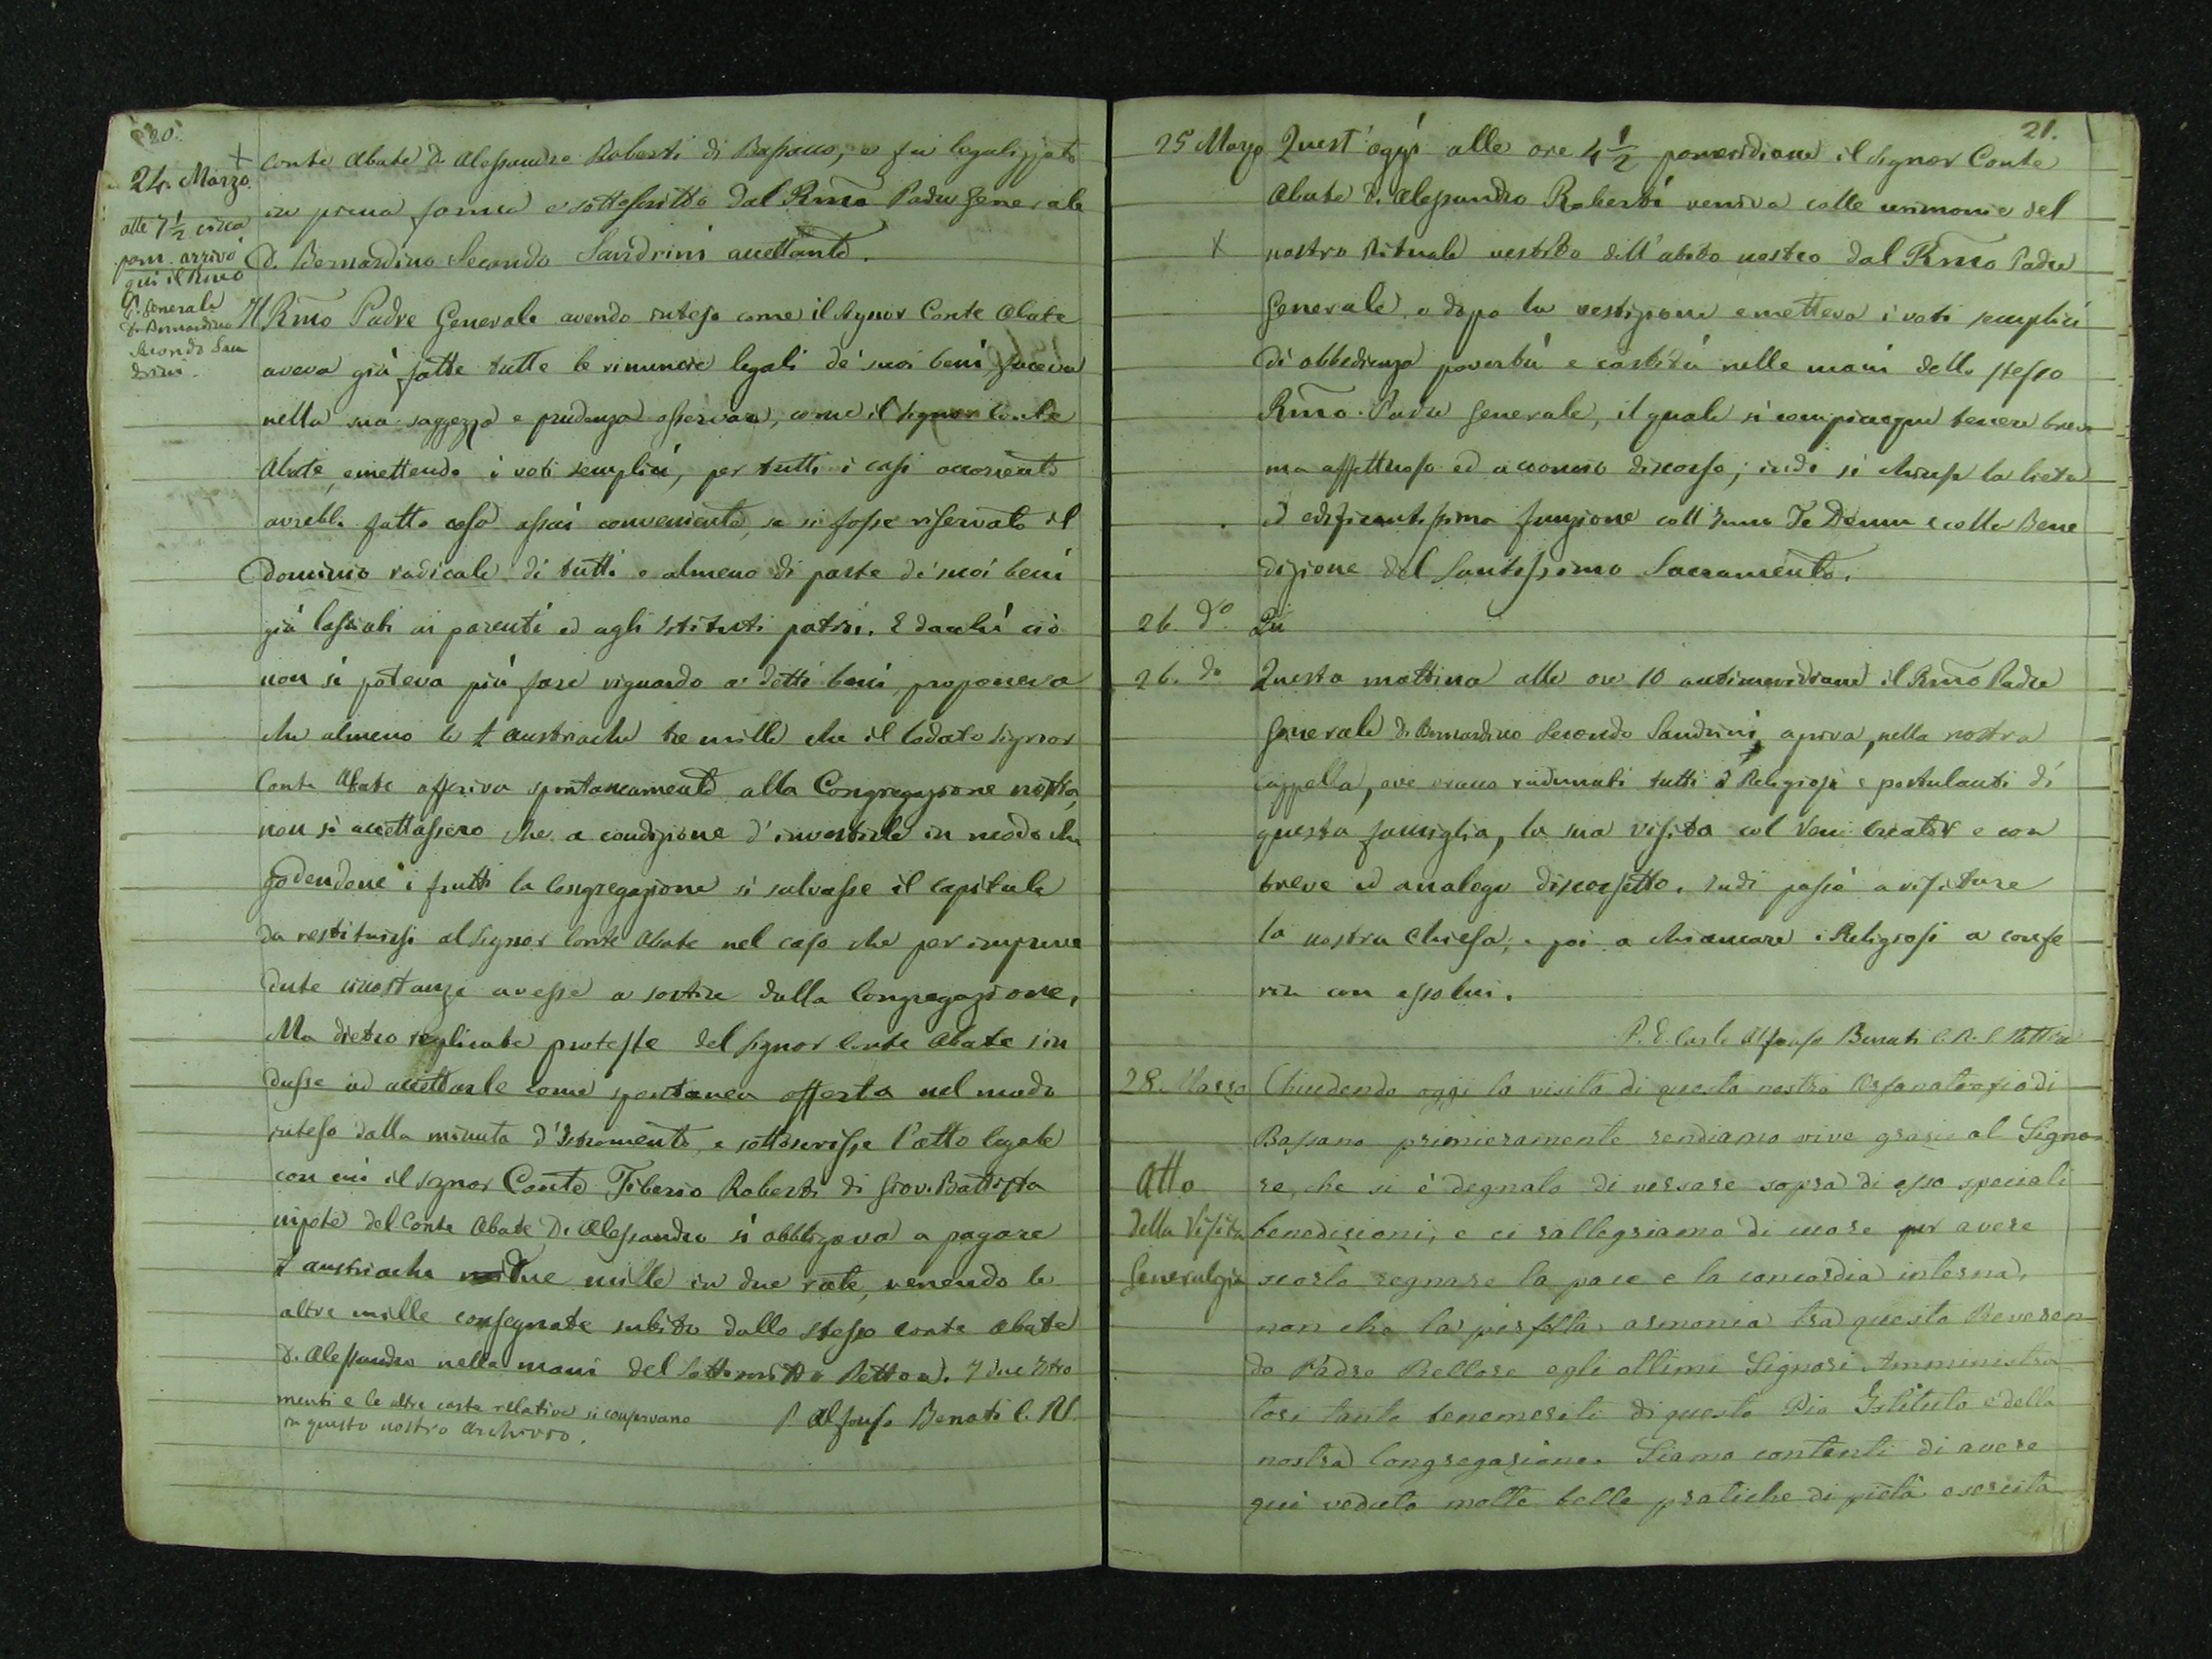 20.
24. Marzo
alle 7 1/2 circa
pom. arrivò
qui il Rmo
P. Generale
D. Bernardino
Secondo San
drini.
Conte Abate D. Alessandro Roberti di Bassano, e fu legalizzato
in prima forma e sottoscritto dal Rmo Padre Generale
D. Bernardino Secondo Sandrini accettante.
Il Rmo Padre Generale avendo inteso come il Signor Conte Abate
aveva già fatte tutte le rinuncie legali de' suoi beni faceva
nella sua saggezza e prudenza osservare, come il Signor Conte
Abate, emettendo i voti semplici, per tutti i casi occorrenti
avrebbe fatto cosa assai conveniente, se si fosse riservato il
Dominio radicale di tutti o almeno di parte de' suoi beni
già lasciati ai parenti ed agli Istituti patrii. E dacchè ciò
non si poteva più fare riguardo a' detti beni, proponeva
che almeno le £ austriache tre mille che il lodato Signor
Conte Abate offeriva spontaneamente alla Congregazione nostra,
non si accettassero che a condizione d'investirle in modo che
godendone i frutti la Congregazione si salvasse il capitale
da restituirsi al Signor Conte Abate nel caso che per impreve
dute circostanze avesse a sortire dalla Congregazione.
Ma dietro replicate proteste del Signor Conte Abate s'in
dusse ad accettarle come spontanea offerta nel modo
inteso dalla minuta d'Istromento, e sottoscrisse l'atto legale
con cui il Signor Conte Tiberio Roberti di Giov. Battista
nipote del Conte Abate D. Alessandro si obbligava a pagare
£ austriache due mille in due rate, venendo le
altre mille consegnate subito dallo stesso Conte Abate
D. Alessandro nelle mani del sottoscritto Rettore. I due Istro
menti e le altre carte relative si conservano
in questo nostro Archivio.
P. Alfonso Benati C. R. S.
21.
25 Marzo Quest'oggi alle ore 4 1/2 pomeridiane il Signor Conte
Abate D. Alessandro Roberti veniva colle cerimonie del
nostro Rituale vestito dell'abito nostro dal Rmo Padre
Generale e dopo la vestizione emetteva i voti semplici
di obbedienza povertà e castità nelle mani dello stesso
Rmo Padre Generale, il quale si compiacque tenere breve
ma affettuoso ed acconcio discorso; indi si chiuse la lieta
ed edificantissima funzione coll'Inno Te Deum e colla Bene
dizione del Santissimo Sacramento.
26. do
26. do Questa mattina alle ore 10 antimeridiane il Rmo Padre
Generale D. Bernardino Secondo Sandrini apriva, nella nostra
Cappella, ove erano radunati tutti i Religiosi e postulanti di
questa famiglia, la sua visita col Veni Creator e con
breve ed analogo discorsetto. Indi passò a visitare
la nostra Chiesa, e poi a chiamare i Religiosi a confe
rire con esso lui.
P. D. Carlo Alfonso Benati C. R. S. Rettore
28. Marzo Chiudendo oggi la visita di questo nostro Orfanatrofio di
Bassano primieramente rendiamo vive grazie al Signo
Atto
della Visita
Generalizia
re, che si è degnato di versare sopra di esso speciali
benedizioni, e ci rallegriamo di cuore per avere
scorto regnare la pace e la concordia interna,
non che la perfetta armonia tra questo Reveren
do Padre Rettore e gli ottimi Signori Amministra
tori tanto benemeriti di questo Pio Istituto e della
nostra Congregazione. Siamo contenti di avere
qui veduto molte belle pratiche di pietà esercita